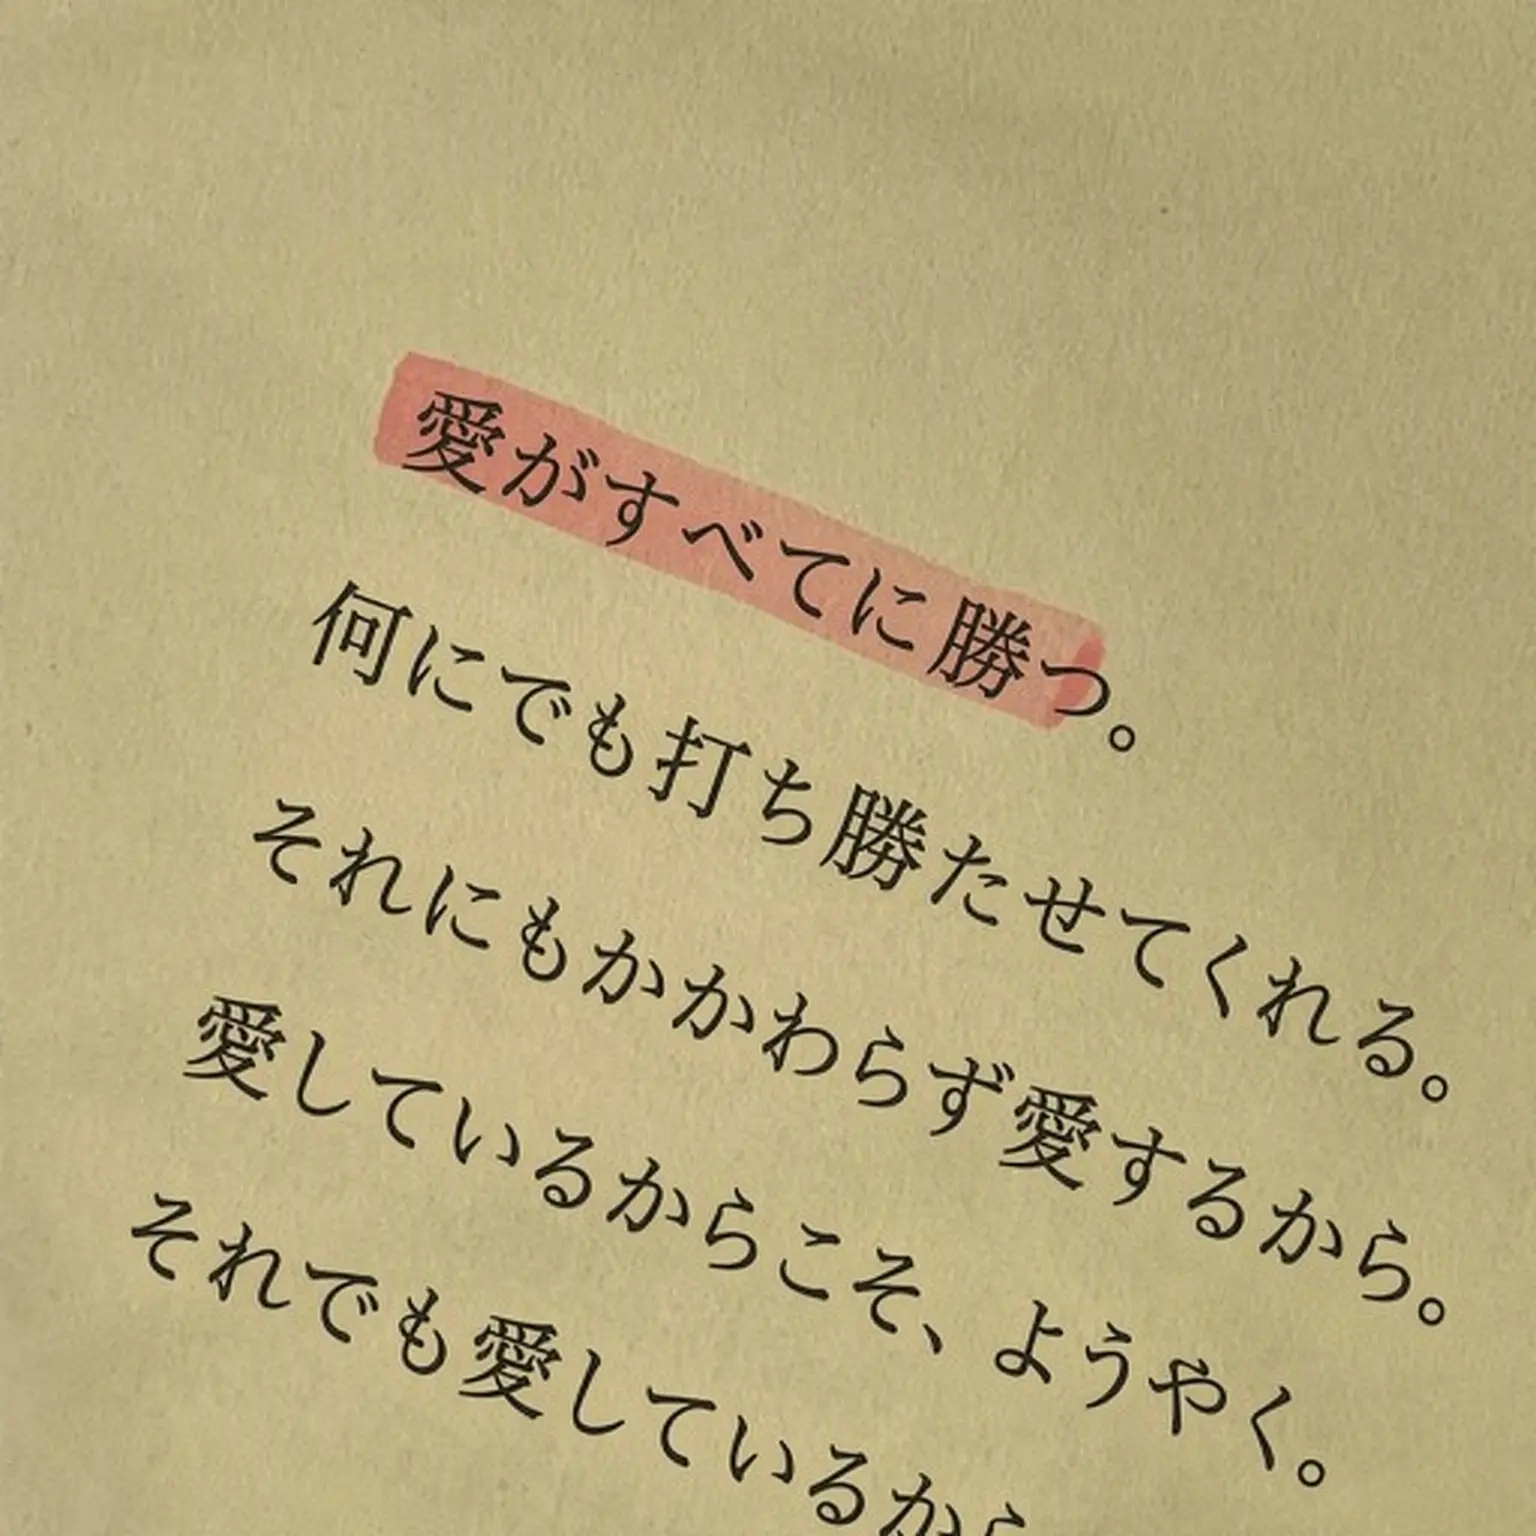 愛がすべてに勝つ。
何にでも打ち勝たせてくれる。
それにもかかわらず愛するから。
愛しているからこそ、ようやく。
それでも愛しているから